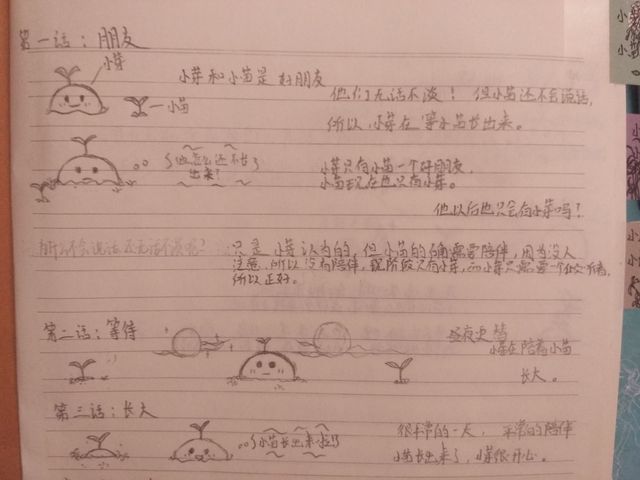 第一话：朋友
小芽
小芽和小苗是好朋友
小苗
他们无话不谈！但小苗还不会说话，
所以，小芽在等小苗长出来。
他怎么还不长
出来？
小芽只有小苗一个好朋友，
小苗现在也只有小芽。
他以后也只会有小芽吗？
不会说话还无话不谈呢？
只是小芽认为的，但小苗的确需要陪伴，因为没人
注意，所以没有陪伴，现阶段只有小芽，而小芽只需要一个
所以正好。
第二话：等待
昼夜更替
小芽在陪着小苗
长大。
第三话：长大
小苗长出来啦！
很平常的一天，平常的陪伴
小苗长出来了，小芽很开心。
小
小苗